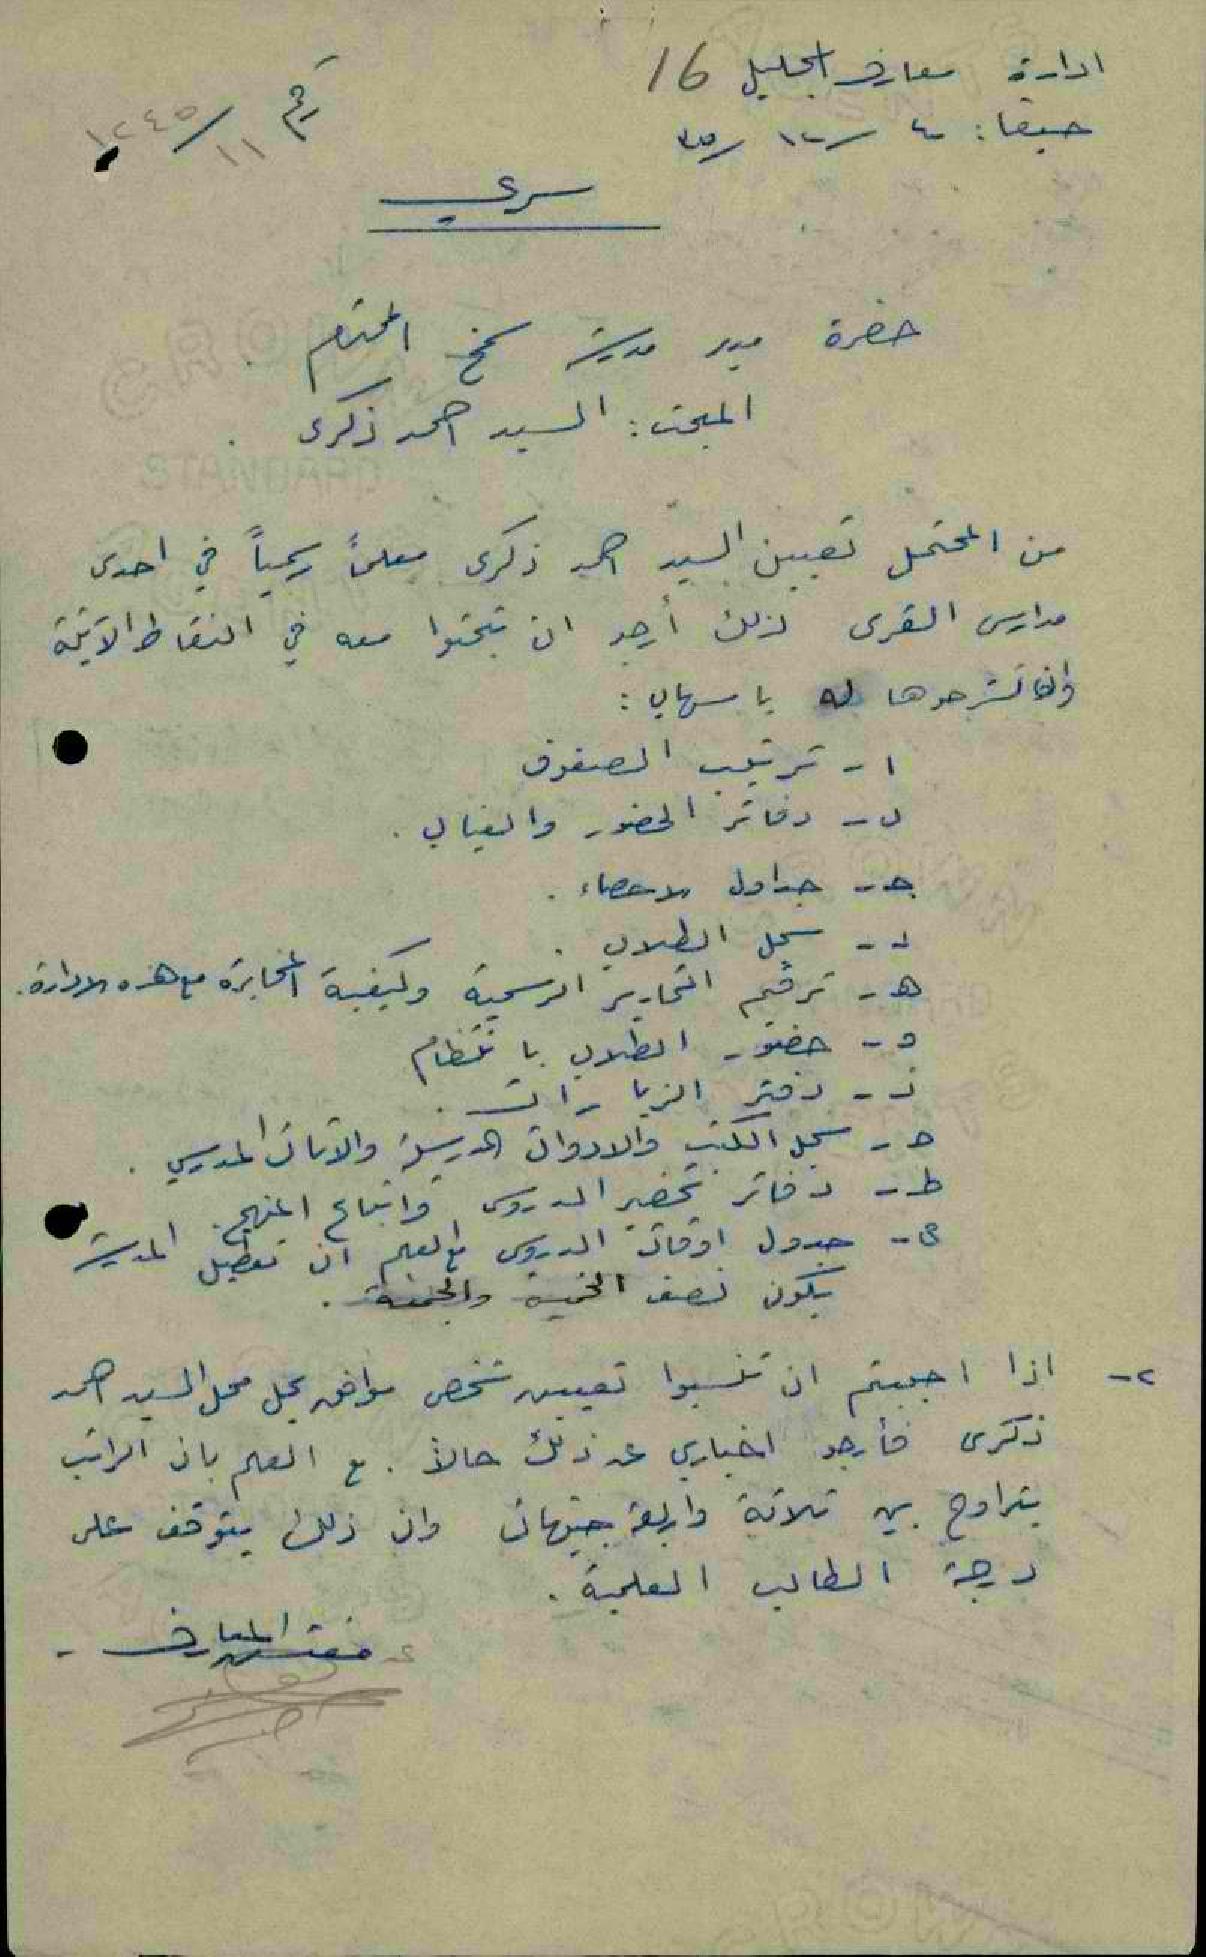 ادارة معارف الجليل 16
حيفا: ٤ / ١٢ / ٣٥
رقم ١١ / ١٢٤٥
سري
حضرة مدير مدرسة سمخ المحترم .
المبحث: السيد احمد زكرى .
من المحتمل تعيين السيد احمد زكرى معلماً رسمياً في احدى
مدارس القرى لذلك أرجو ان تبحثوا معه في النقاط الآتية
وان تشرحوها له باسهاب :
ا - ترتيب الصفوف
ب - دفاتر الحضور والغياب .
ج - جداول الاحصاء .
د - سجل الطلاب .
هـ - ترقيم التحارير الرسمية وكيفية المخابرة مع هذه الادارة .
و - حضور الطلاب بانتظام
ز - دفتر الزيارات .
ح - سجل الكتب والادوات المدرسية والاثاث المدرسي .
ط - دفاتر تحضير الدروس واتباع المنهج .
ى - جدول اوقات الدروس مع العلم ان تعطيل المدرسة
يكون نصف الخميس والجمعة .
٢ - اذا احببتم ان تنسبوا تعيين شخص موافق يحل محل السيد احمد
زكرى فأرجو اخباري عن ذلك حالاً . مع العلم بان الراتب
يتراوح بين ثلاثة واربعة جنيهات وان ذلك يتوقف على
درجة الطالب العلمية .
عن مفتش المعارف -